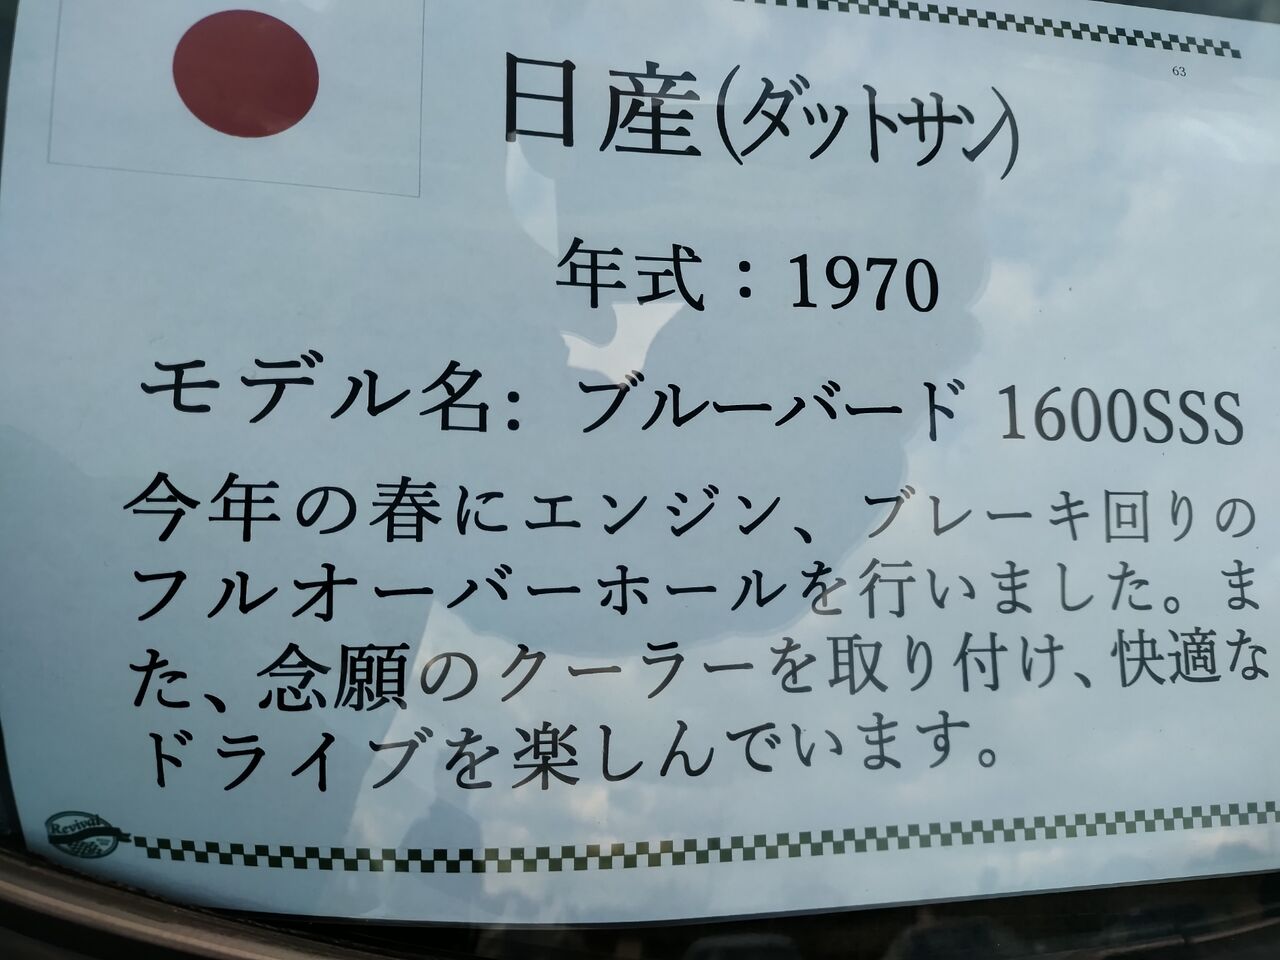 63
日産(ダットサン)
年式：1970
モデル名: ブルーバード 1600SSS
今年の春にエンジン、ブレーキ回りの
フルオーバーホールを行いました。ま
た、念願のクーラーを取り付け、快適な
ドライブを楽しんでいます。
Revival